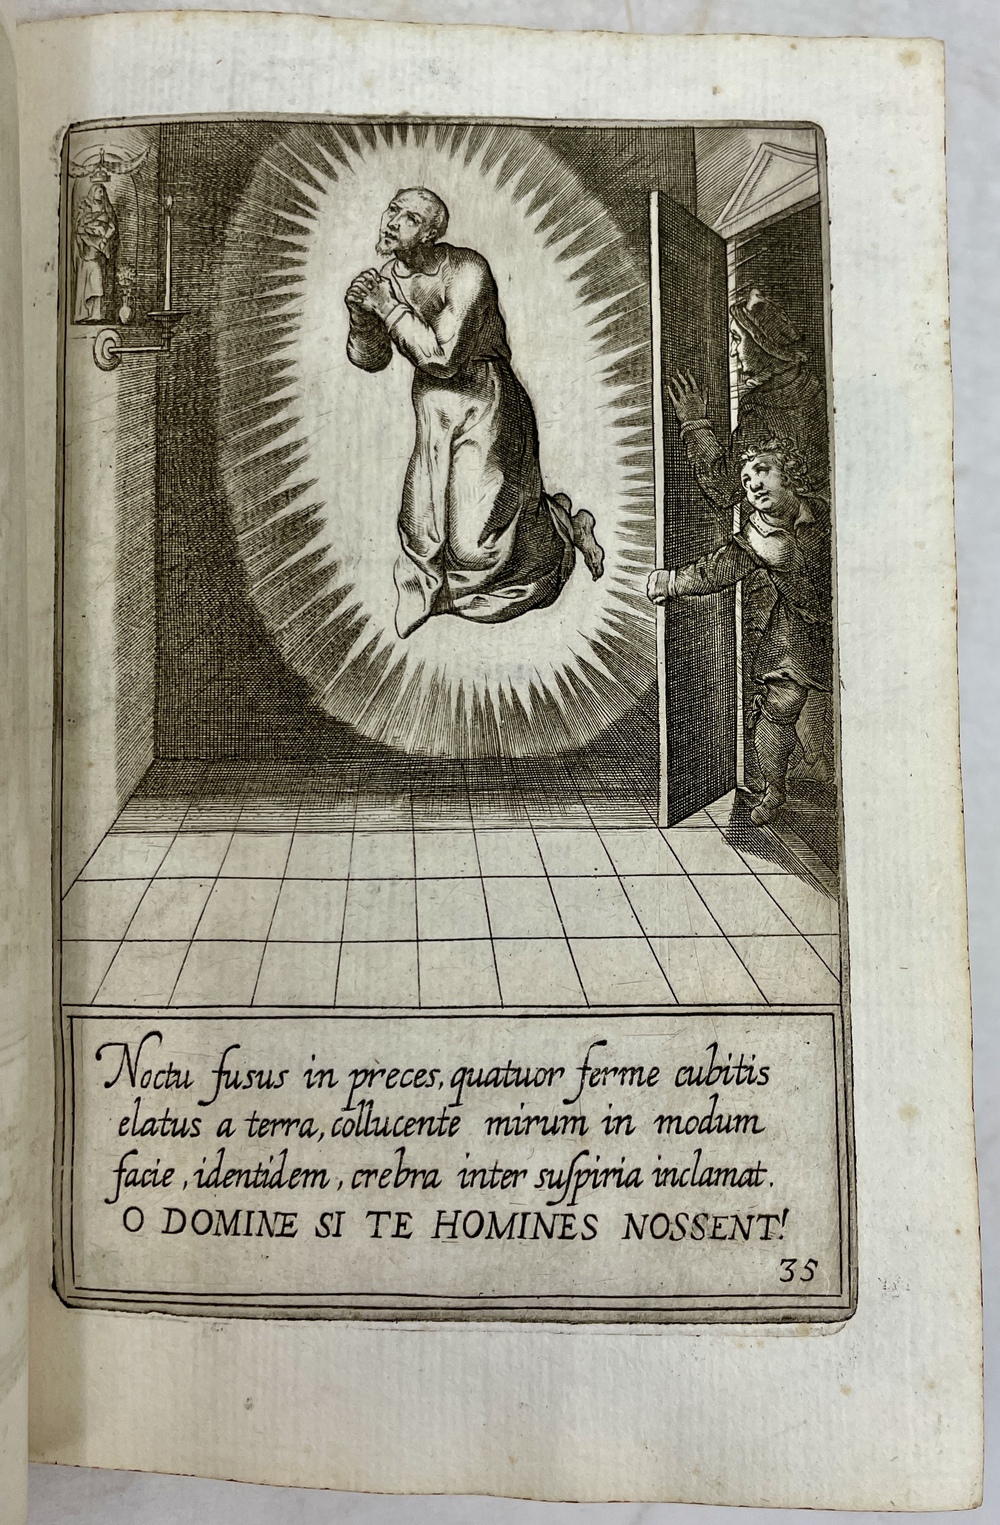 Noctu fusus in preces, quatuor ferme cubitis
elatus a terra, collucente mirum in modum
facie, identidem, crebra inter suſpiria inclamat.
O DOMINE SI TE HOMINES NOSSENT!
35